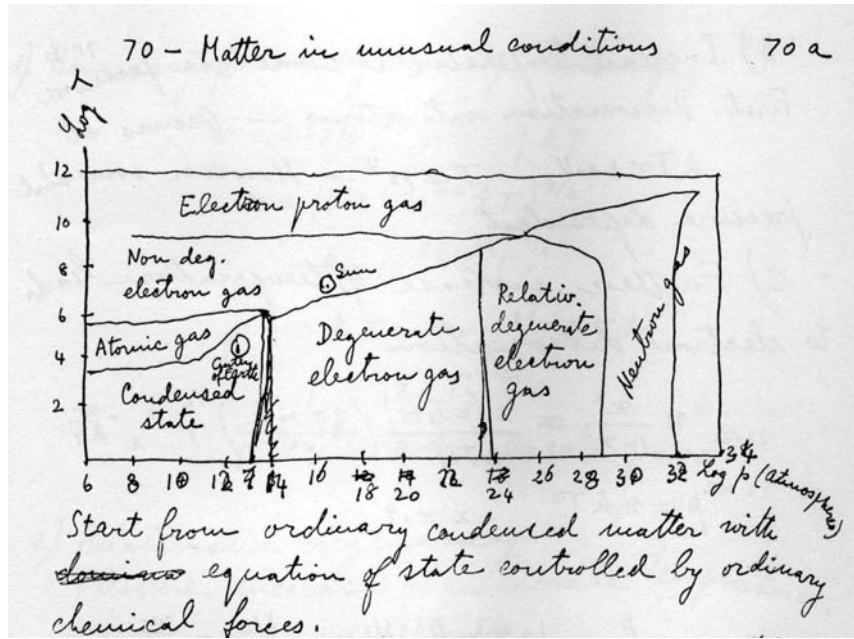 70 - Matter in unusual conditions 70 a
Log T
12
10
8
6
4
2
Electron proton gas
Non deg.
electron gas
Sun
Atomic gas
Center
of earth
Condensed
state
Degenerate
electron gas
Relativ.
degenerate
electron
gas
Neutron gas
6 8 10 12 14 16 18 20 22 24 26 28 30 32 34
Log p (atmospheres)
Start from ordinary condensed matter with
equation of state controlled by ordinary
chemical forces.